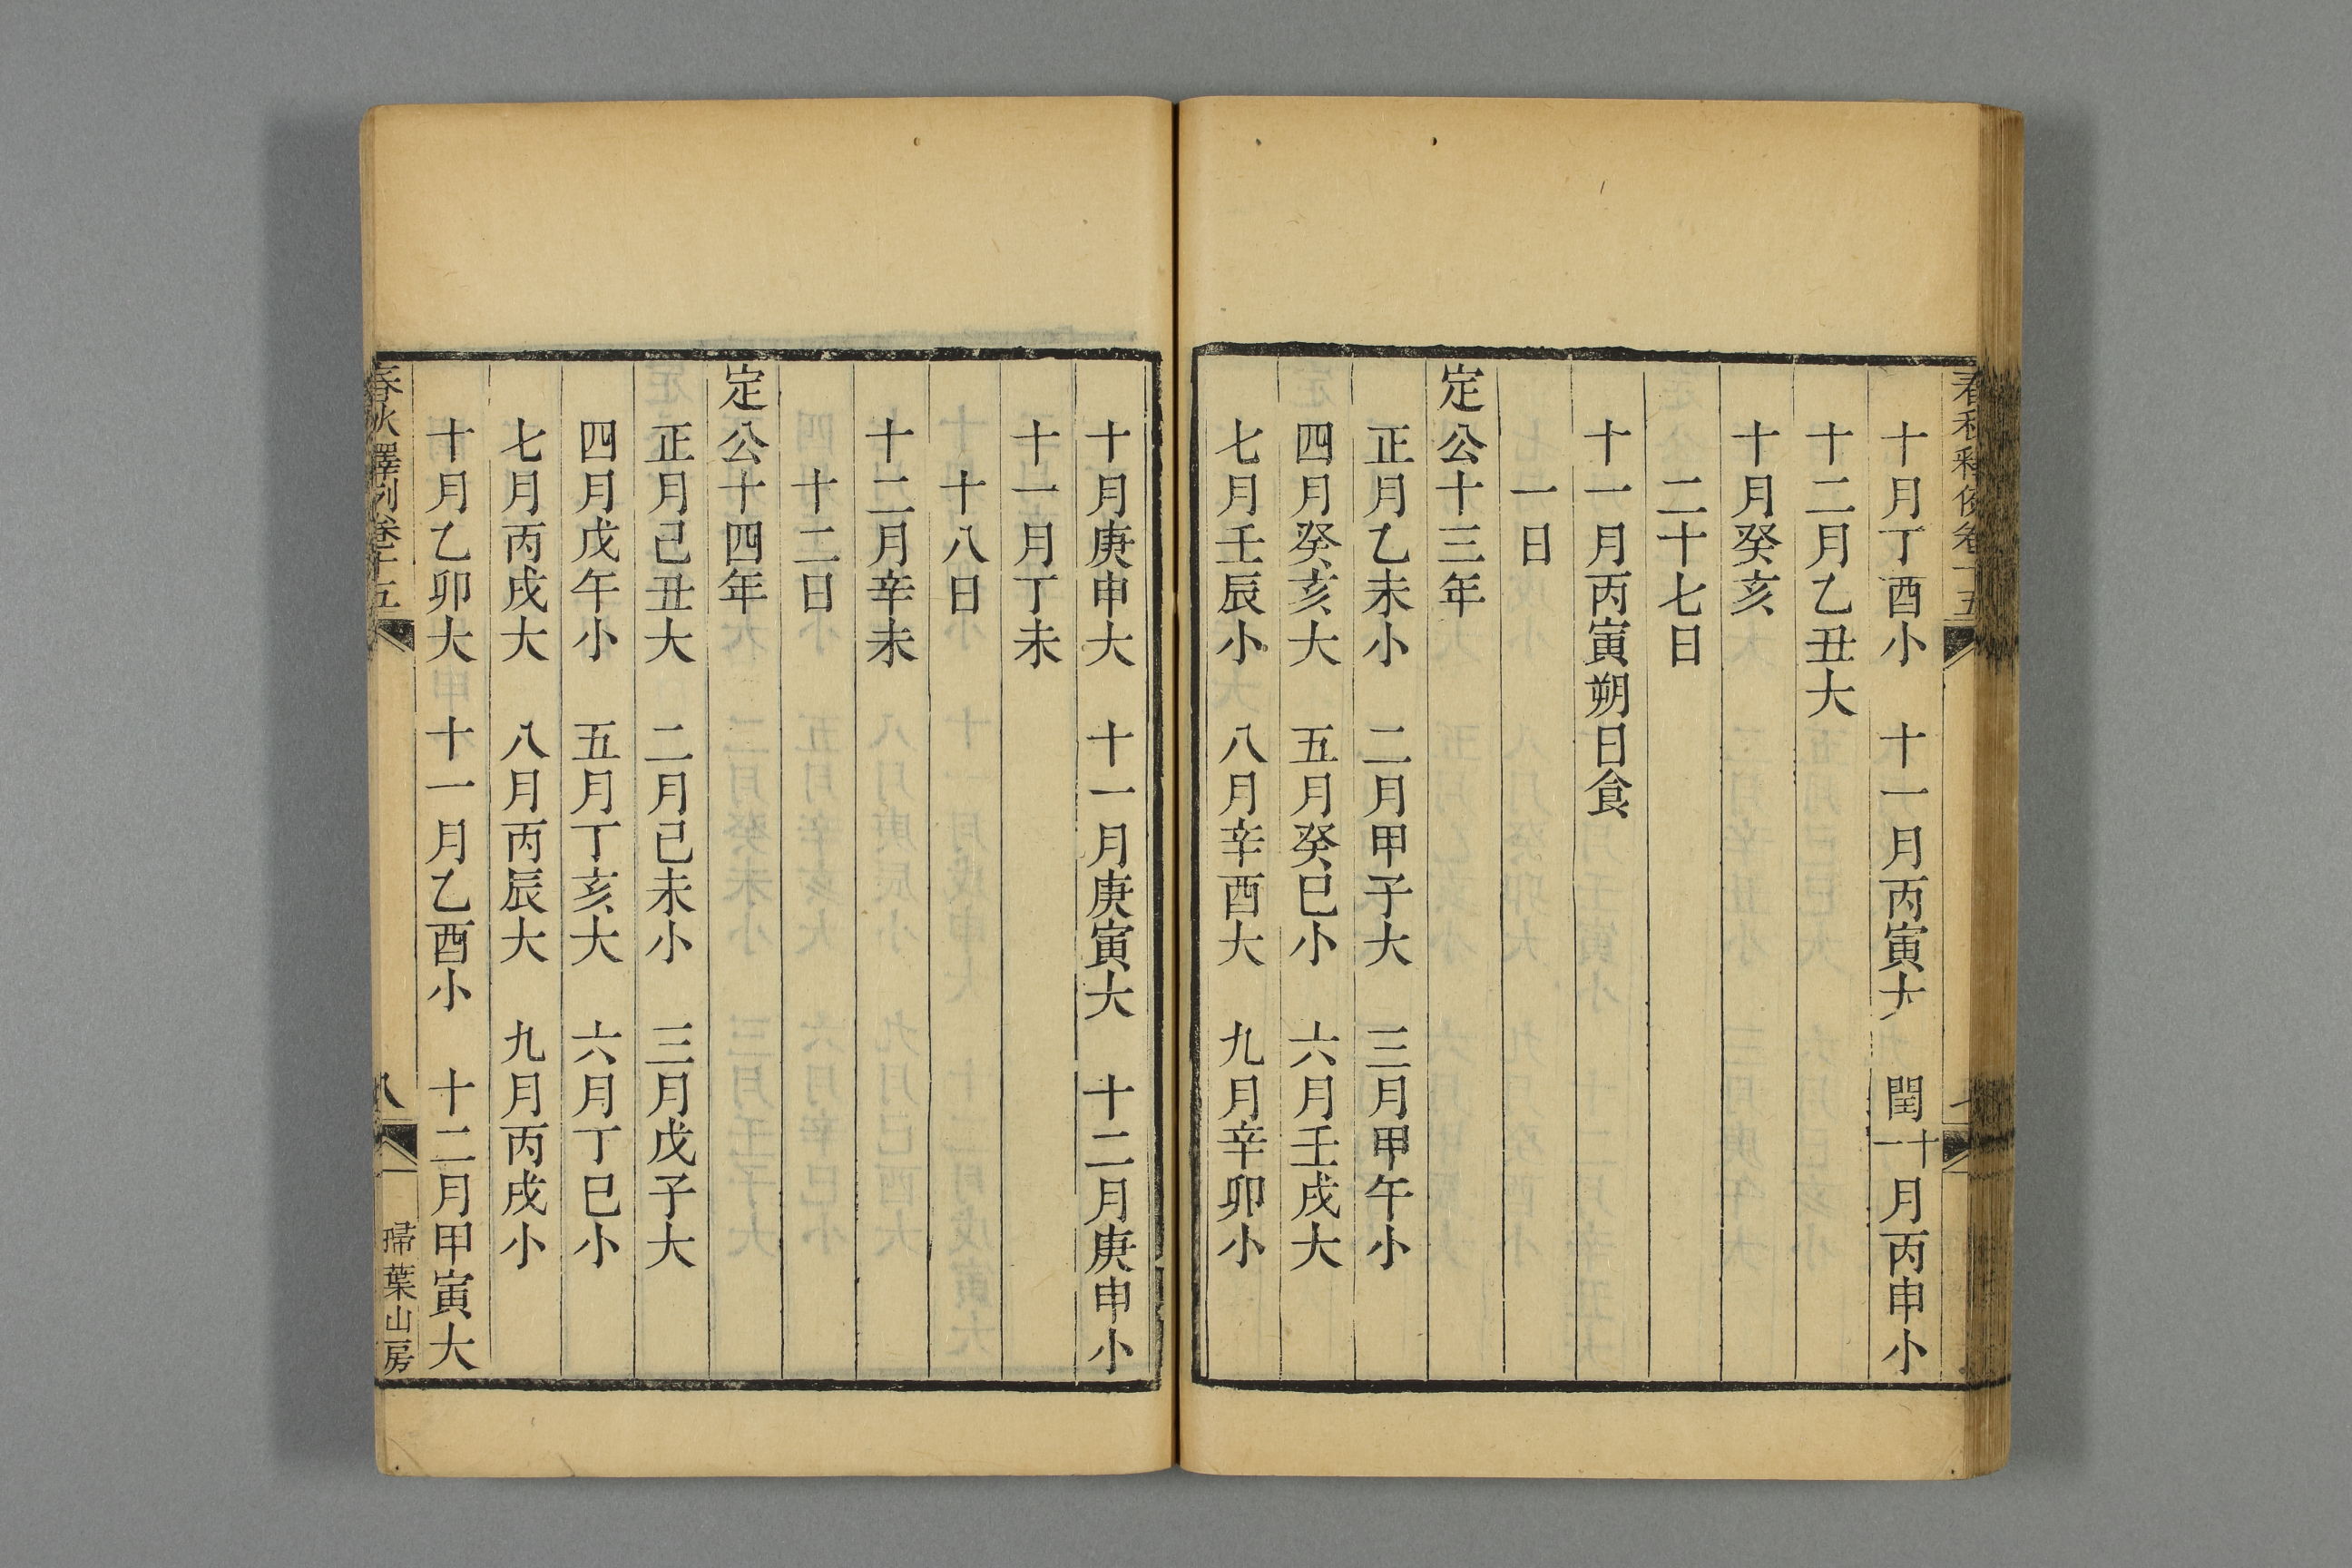 十月丁酉小　十一月丙寅大　閏十一月丙申小
十二月乙丑大
十月癸亥
二十七日
十一月丙寅朔日食
一日
定公十三年
正月乙未小　二月甲子大　三月甲午小
四月癸亥大　五月癸巳小　六月壬戌大
七月壬辰小　八月辛酉大　九月辛卯小
十月庚申大　十一月庚寅大　十二月庚申小
十一月丁未
十八日
十二月辛未
十二日
定公十四年
正月己丑大　二月已未小　三月戊子大
四月戊午小　五月丁亥大　六月丁巳小
七月丙戌大　八月丙辰大　九月丙戌小
十月乙卯大　十一月乙酉小　十二月甲寅大
春秋釋例卷十五　八　掃葉山房